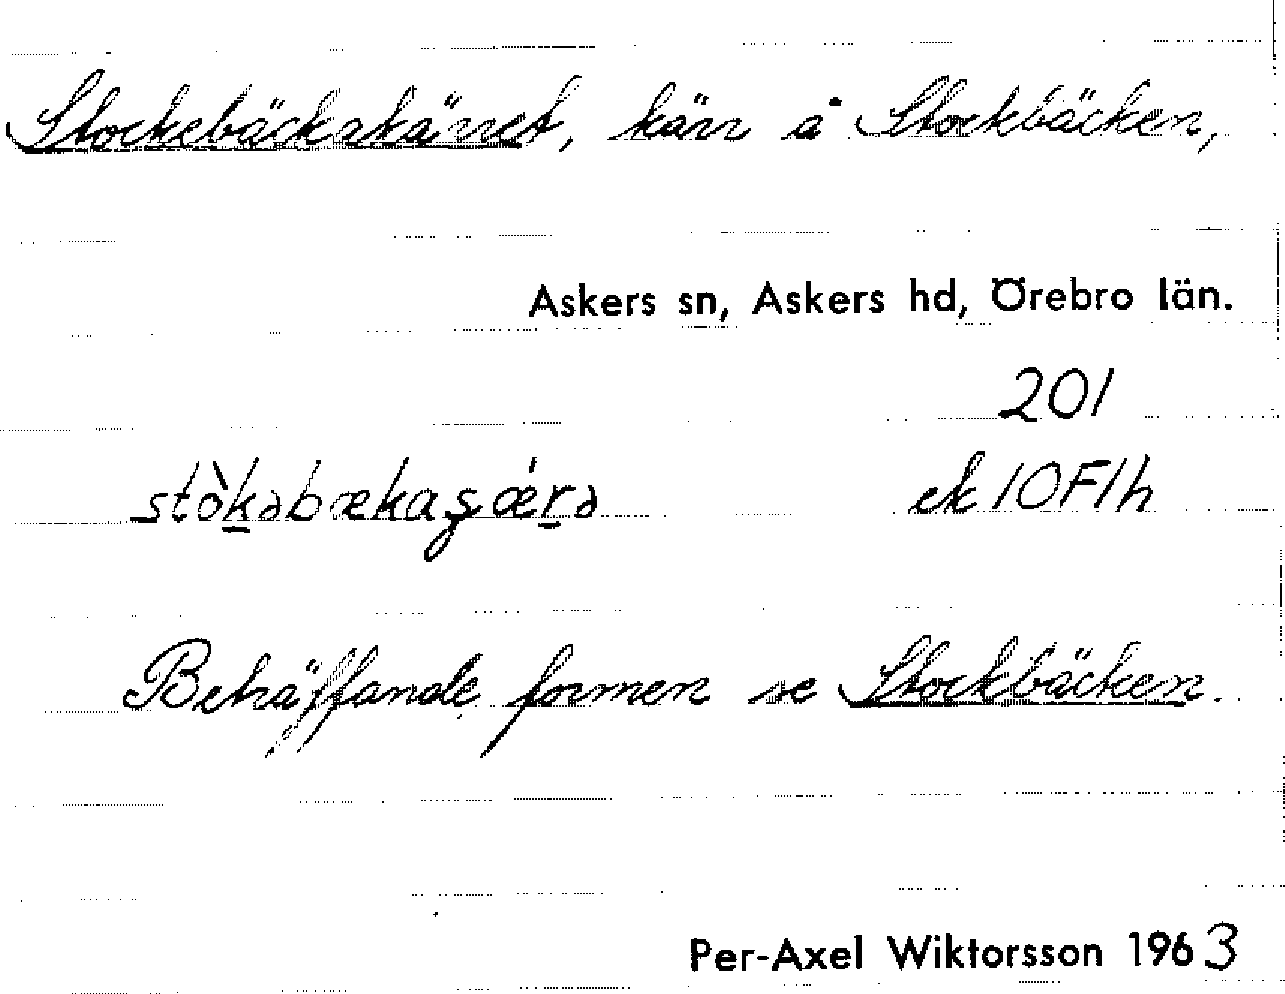 Stockebäckskärret, kärr å Stockbäcken,
Askers sn, Askers hd, Örebro län.
201
stòk̲əbækaʂǽr̲ə ek 10F1h
Beträffande formen se Stockbäcken.
Per-Axel Wiktorsson 1963